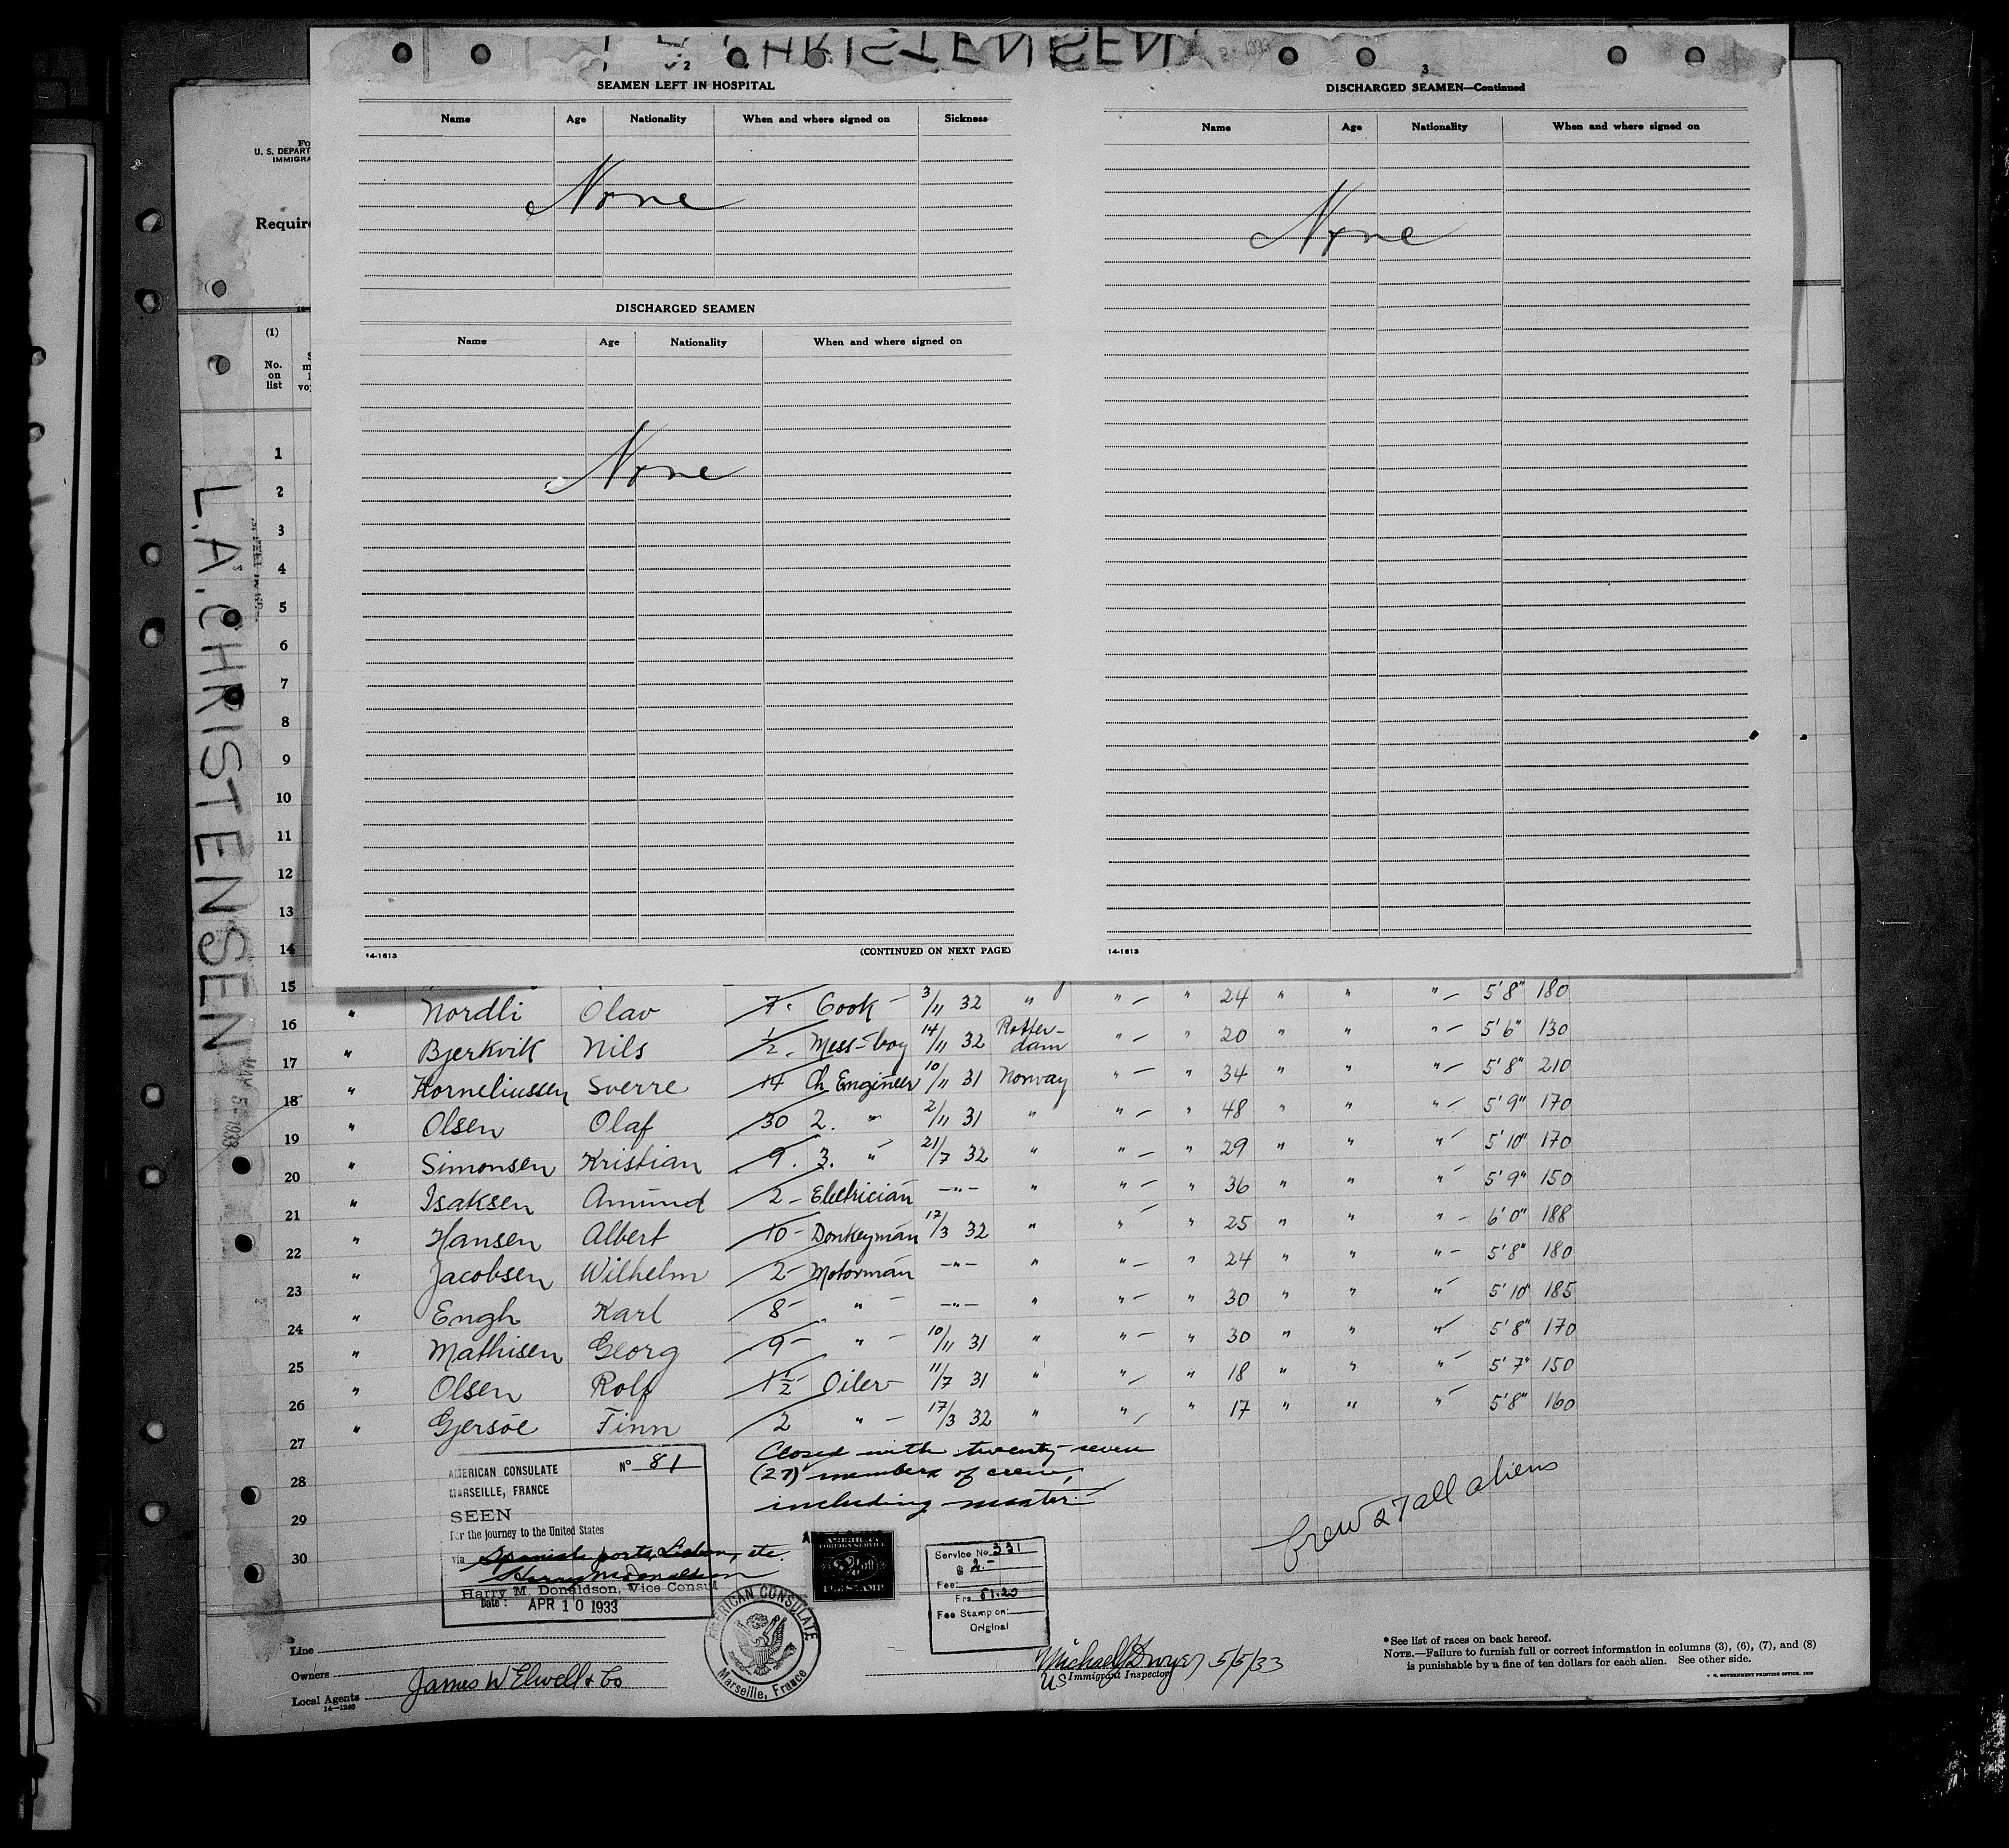 CHRISTENSEN
2
SEAMEN LEFT IN HOSPITAL
Name Age Nationality When and where signed on Sickness
None
DISCHARGED SEAMEN
Name Age Nationality When and where signed on
None
(CONTINUED ON NEXT PAGE)
14-1613
3
DISCHARGED SEAMEN—Continued
Name Age Nationality When and where signed on
None
14-1613
U. S. DEPART
IMMIGRA
Require
(1)
No. on list
L.A. CHRISTENSEN
1
2
3
4
5
6
7
8
9
10
11
12
13
14
15 " Nordli Olav 7. Cook – 3/11 32 " " – " 24 " " " – 5' 8" 180
16 " Bjerkvik Nils 1/2. Mess-boy 14/11 32 Rotter-dam " – " 20 " " " – 5' 6" 130
17 " Korneliussen Sverre 14 Ch Engineer 10/11 31 Norway " – " 34 " " " – 5' 8" 210
18 " Olsen Olaf 30 2. " 2/11 31 " " – " 48 " " " – 5' 9" 170
19 " Simonsen Kristian 9. 3. " 21/7 32 " " – " 29 " " " – 5' 10" 170
20 " Isaksen Amund 2 – Electrician –"– " " – " 36 " " " – 5' 9" 150
21 " Hansen Albert 10 – Donkeyman 17/3 32 " " – " 25 " " " – 6' 0" 188
22 " Jacobsen Wilhelm 2 – Motorman –"– " " – " 24 " " " – 5' 8" 180
23 " Engh Karl 8 – " – –"– " " – " 30 " " " – 5' 10" 185
24 " Mathisen Georg 9 – " – 10/11 31 " " – " 30 " " " – 5' 8" 170
25 " Olsen Rolf 1 1/2 – Oiler – 11/7 31 " " – " 18 " " " – 5' 7" 150
26 " Gjersöe Finn 2 " – 17/3 32 " " – " 17 " " " – 5' 8" 160
27
28
29
30
Closed with twenty-seven
(27) members of crew,
including master.
Crew 27 all aliens
AMERICAN CONSULATE No 81
MARSEILLE, FRANCE
SEEN
For the journey to the United States
via Spanish ports, Lisbon, etc.
Harry M Donaldson
Harry M. Donaldson, Vice Consul
Date: APR 10 1933
AMERICAN
FOREIGN SERVICE
FEE STAMP
AMERICAN CONSULATE
Marseille, France
Service No 331
$ 2.-
Fee:
Frs 51.20
Fee Stamp on:
Original
Line
Owners
Local Agents James W Elwell & Co
14—1240
Michael J Dwyer 5/5/33
US Immigrant Inspector
*See list of races on back hereof.
NOTE.—Failure to furnish full or correct information in columns (3), (6), (7), and (8)
is punishable by a fine of ten dollars for each alien. See other side.